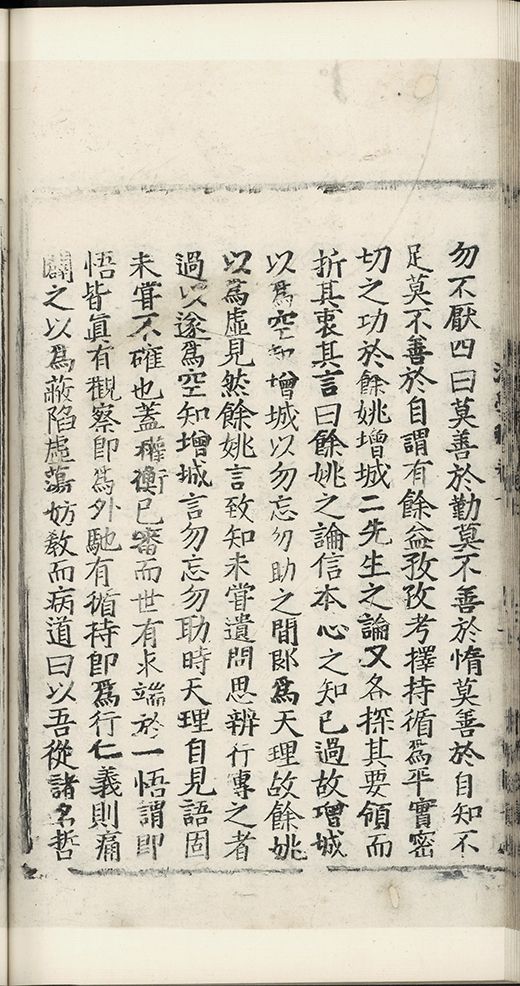 勿不厭四曰莫善於勤莫不善於惰莫善於自知不
足莫不善於自謂有餘益孜孜考擇持循爲平實密
切之功於餘姚增城二先生之論又各探其要領而
折其衷其言曰餘姚之論信本心之知已過故增城
以爲空知增城以勿忘勿助之間即爲天理故餘姚
以爲虛見然餘姚言致知未嘗遺問思辨行專之者
過以遂爲空知增城言勿忘勿助時天理自見語固
未嘗不確也蓋權衡已審而世有求端於一悟謂即
悟皆眞有觀察即爲外馳有循持即爲行仁義則痛
闢之以爲蔽陷虛蕩妨教而病道曰以吾從諸名哲